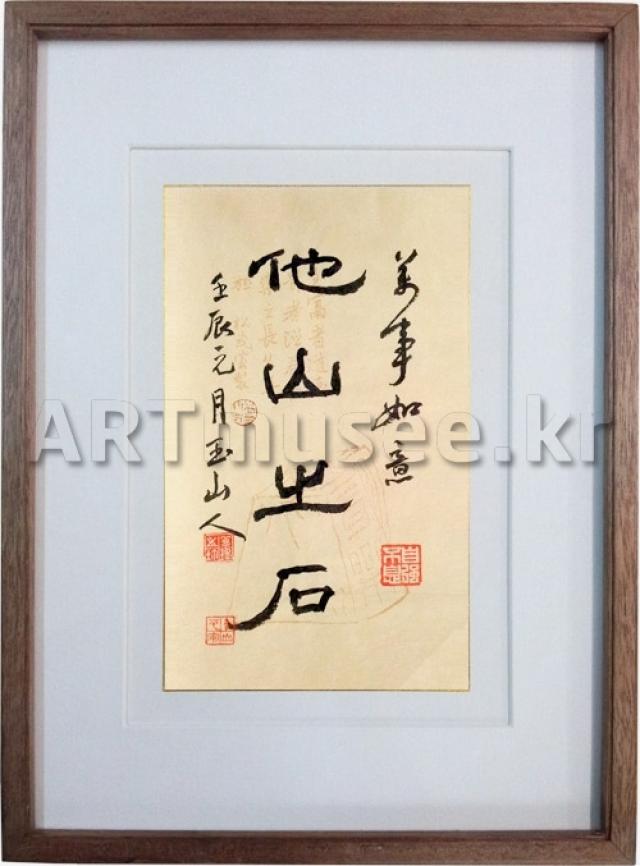 萬事如意
他山之石
壬辰元月玉山人
自強不息
ARTmusee.kr